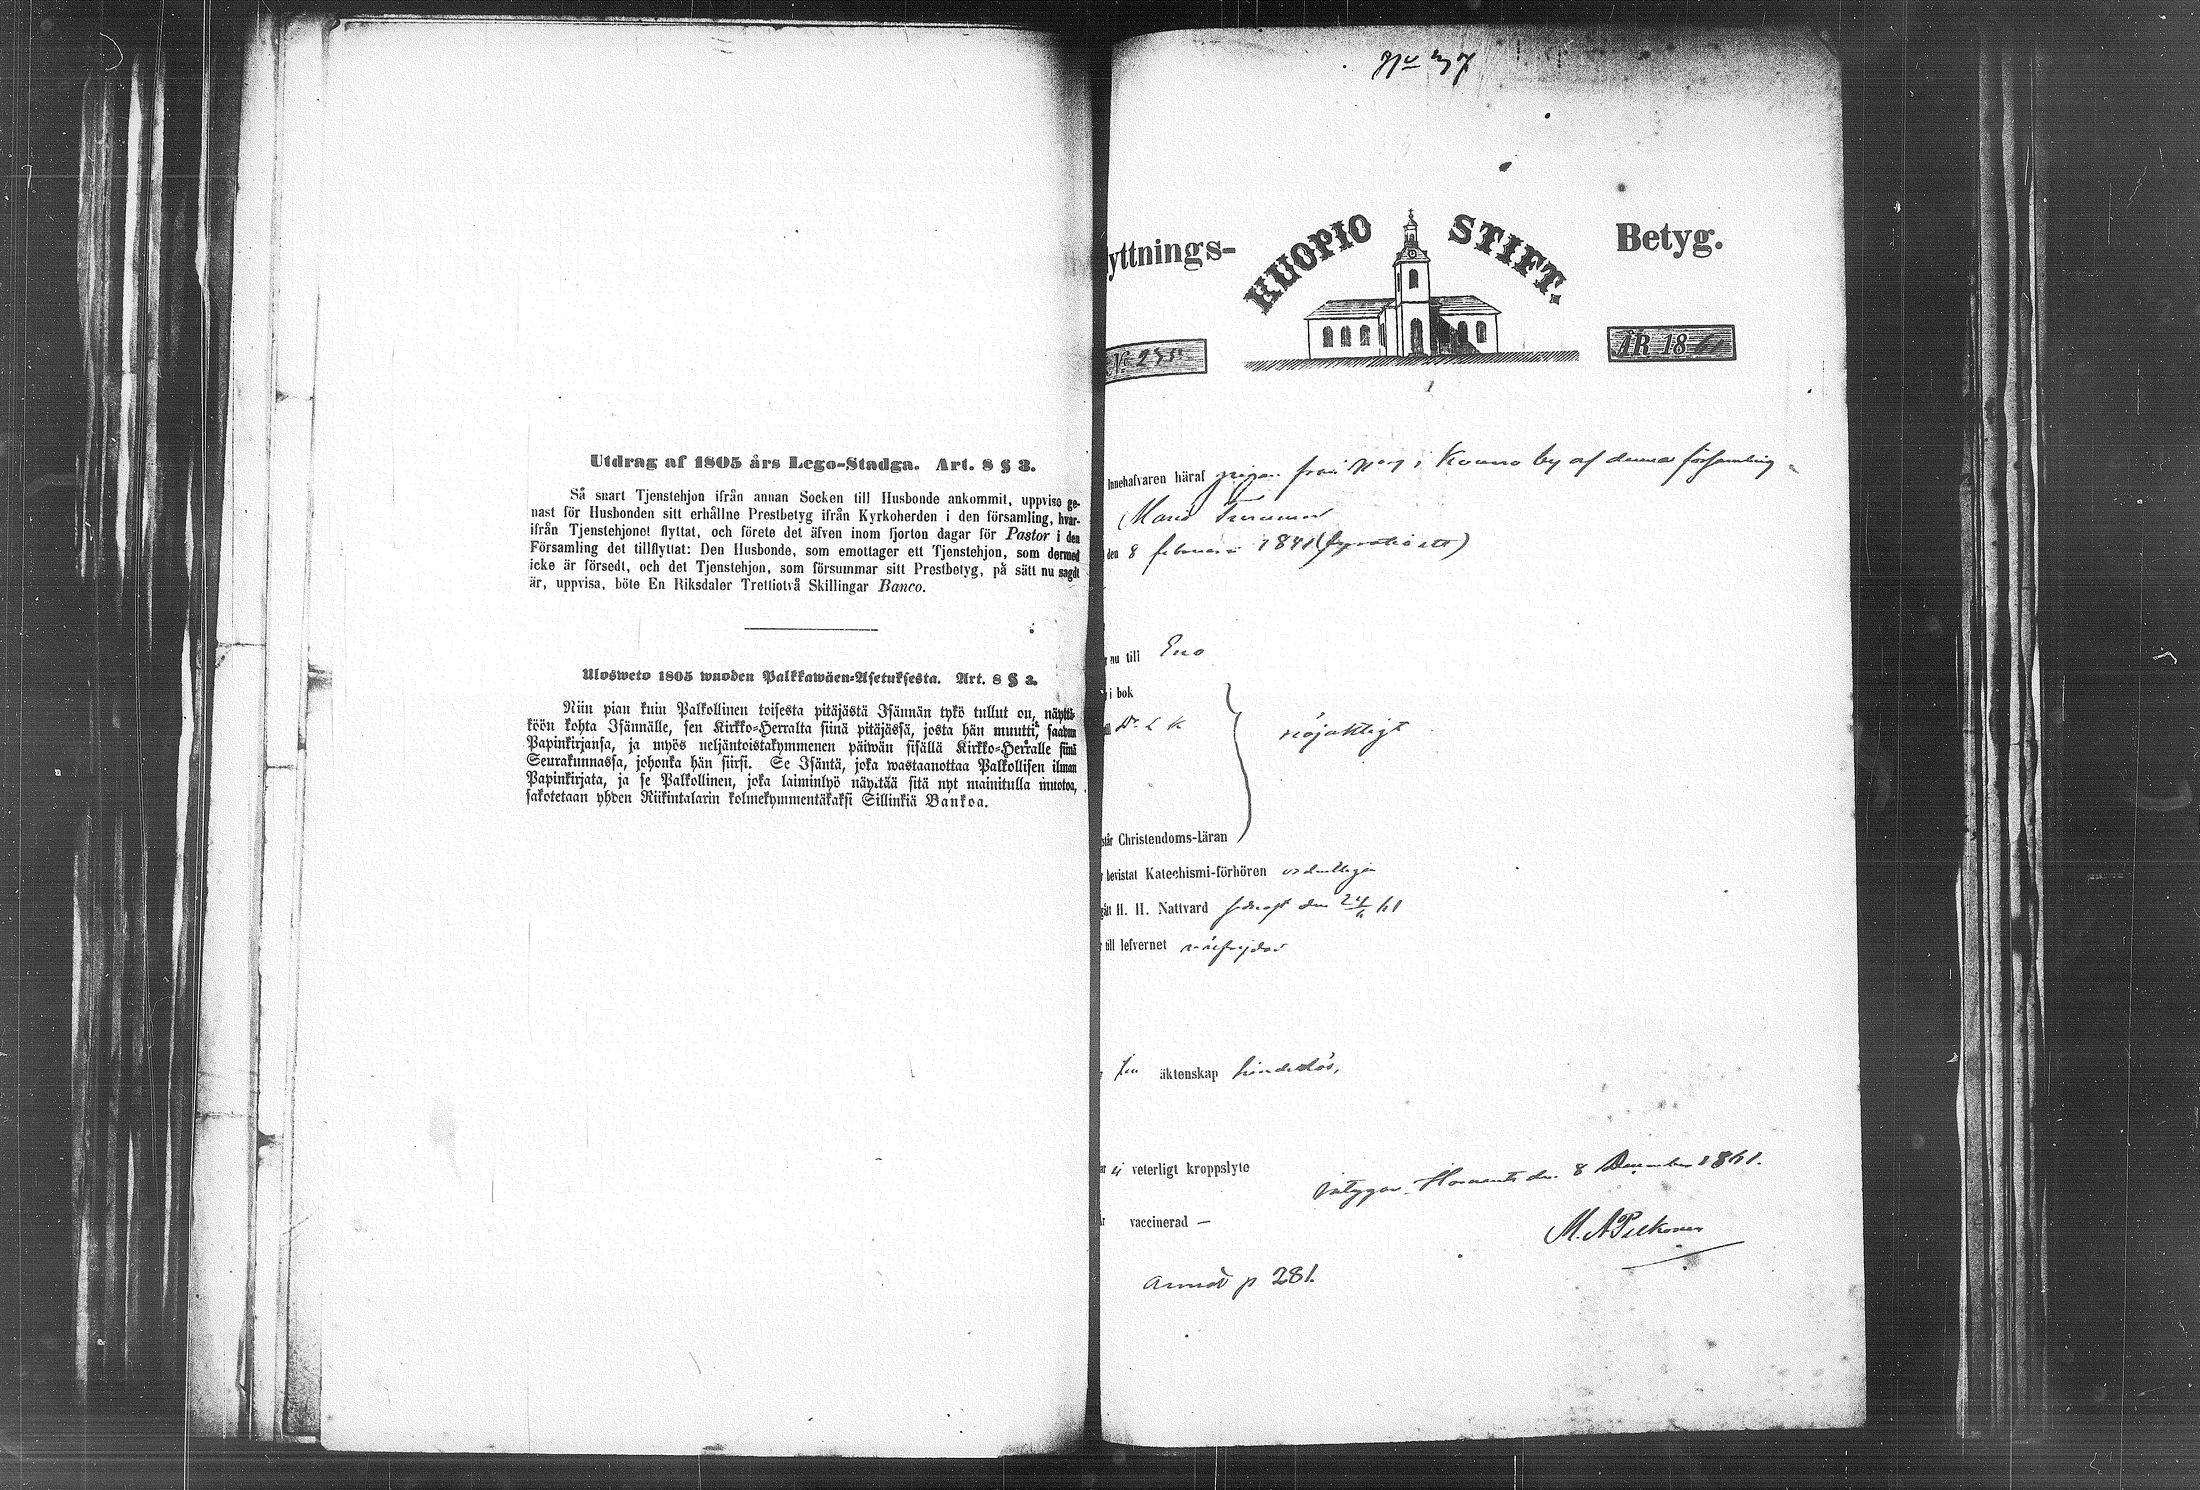 Utdrag af 1805 års Lego-Stadga. Art. 8 § 3.
Så snart Tjenstehjon ifrån annan Socken till Husbonde ankommit, uppvise ge-
nast för Husbonden sitt erhållne Prestbetyg ifrån Kyrkoherden i den församling, hvar-
ifrån Tjenstehjonet flyttat, och förete det äfven inom fjorton dagar för Pastor i den
Församling det tillflyttat: Den Husbonde, som emottager ett Tjenstehjon, som dermed
icke är försedt, och det Tjenstehjon, som försummar sitt Prestbetyg, på sätt nu sagdt
är, uppvisa, böte En Riksdaler Trettiotvå Skillingar Banco.
Ulosweto 1805 wuoden Palkkawäen-Asetuksesta. Art. 8 § 3.
Niin pian kuin Palkollinen toisesta pitäjästä Isännän tykö tullut on, näyttä-
köön kohta Isännälle, sen Kirkko-Herralta siinä pitäjässä, josta hän muutti, saadun
Papinkirjansa, ja myös neljäntoistakymmenen päiwän sisällä Kirkko-Herralle siinä
Seurakunnassa, johonka hän siirsi. Se Isäntä, joka wastaanottaa Palkollisen ilman
Papinkirjata, ja se Palkollinen, joka laiminlyö näyttää sitä nyt mainitulla muotoa,
sakotetaan yhden Riikintalarin kolmekymmentäkaksi Sillinkiä Bankoa.
yttnings-
KUOPIO STIFT.
Betyg.
ÅR 1861
Innehafvaren häraf pigan från i Kovero by af denna församling
Maria
den 8 februari 1841 (fyratio ett)
nu till Eno
i bok
nöjaktigt
står Christendoms-läran
bevistat Katechismi-förhören ordentligen
gått H. H. Nattvard sednast den 61
till lefvernet oförvitlig
äktenskap hinderlös,
ej veterligt kroppslyte
intygar den 8 December 1861.
vaccinerad —
M. A Pelkonen
p 281.